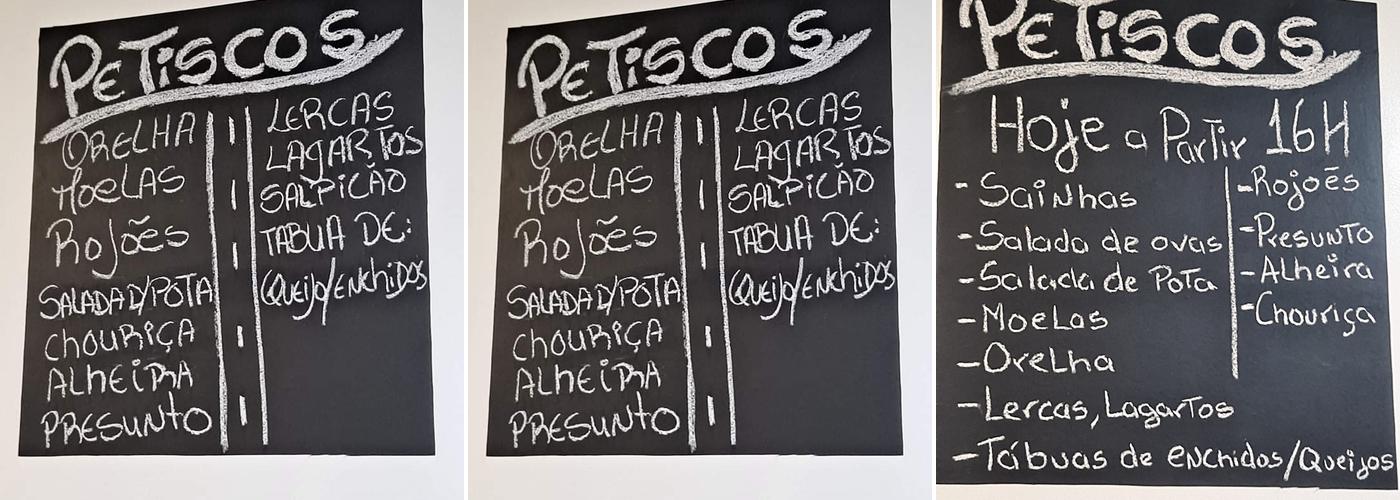 PETISCOS
ORELHA
MOELAS
ROJÕES
SALADA D/POTA
CHOURIÇA
ALHEIRA
PRESUNTO
LERCAS
LAGARTOS
SALPICÃO
TABUA DE:
(QUEIJO/ENCHIDOS
PETISCOS
ORELHA
MOELAS
ROJÕES
SALADA D/POTA
CHOURIÇA
ALHEIRA
PRESUNTO
LERCAS
LAGARTOS
SALPICÃO
TABUA DE:
(QUEIJO/ENCHIDOS
PETISCOS
Hoje a Partir 16H
- Sainhas
- Salada de ovas
- Salada de Pota
- Moelas
- Orelha
- Lercas, Lagartos
- Tábuas de enchidos/Queijos
- Rojoẽs
- Presunto
- Alheira
- Chouriça